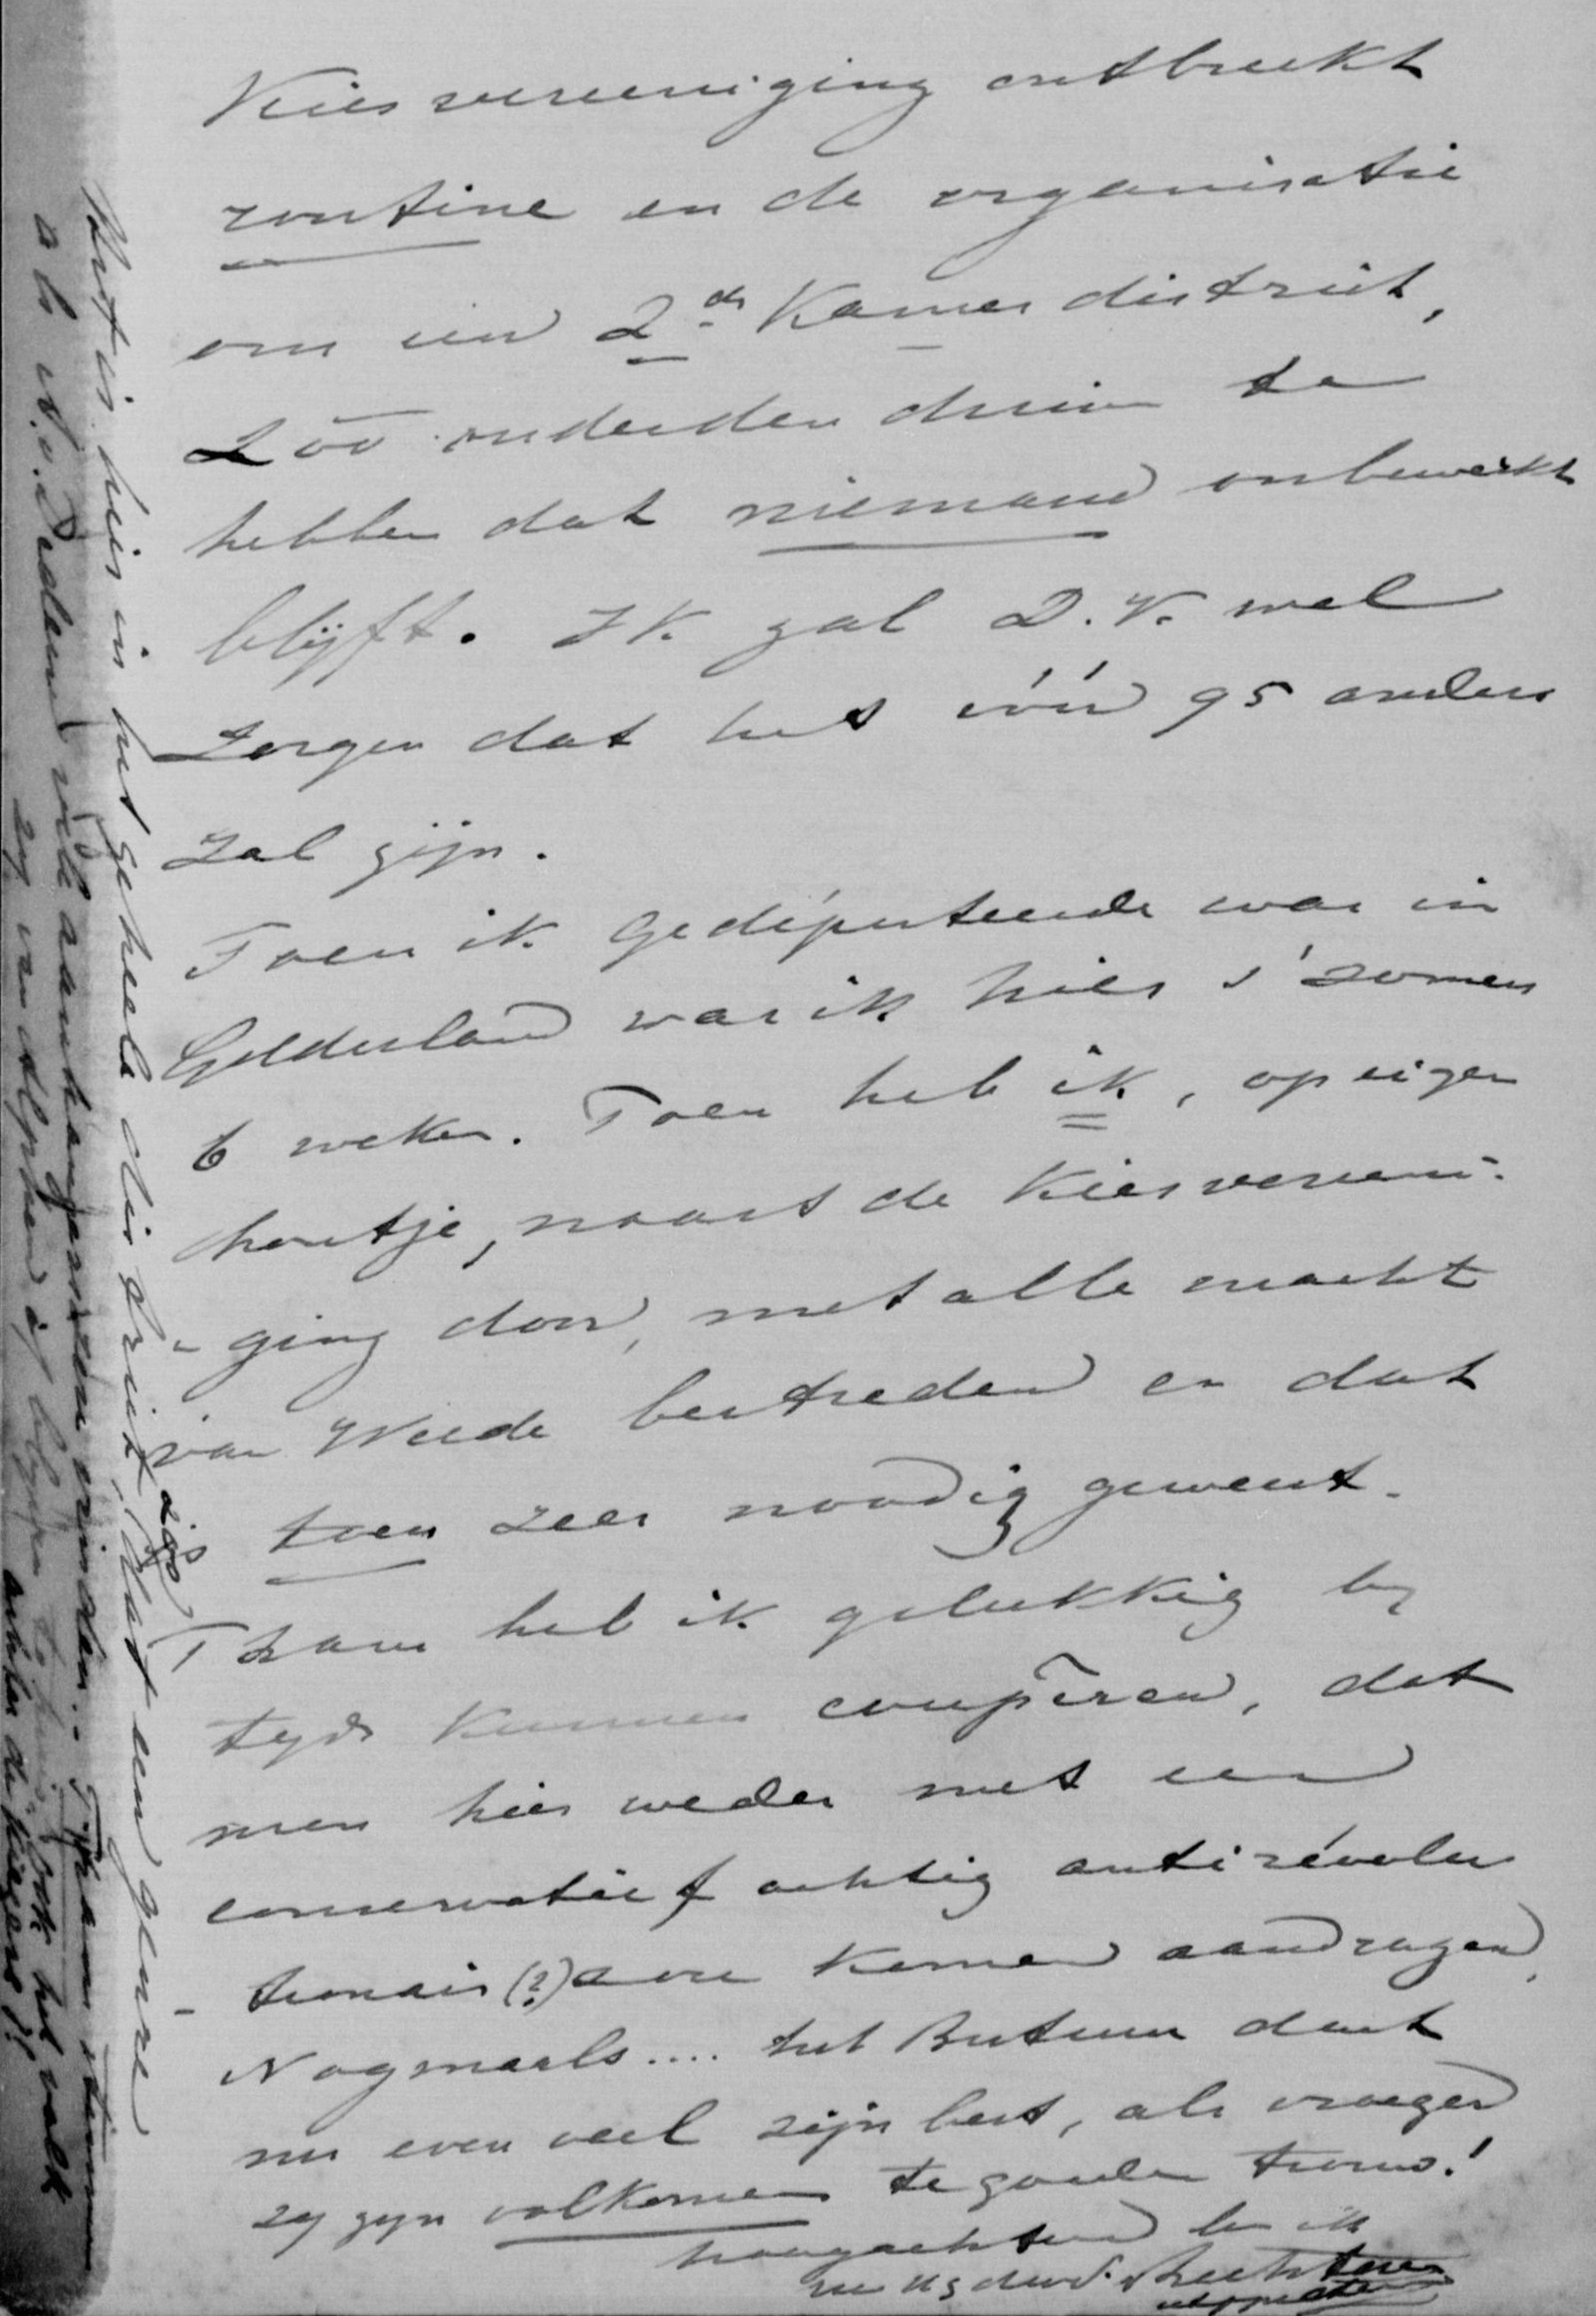 Kiesvereeniging ontbreekt
routine en de organisatie
om een 2de Kamer district,
zóó onder den duim te
hebben dat niemand onbewerkt
blijft. Ik zal D.V. wel
zorgen dat het vóór 95 anders
zal zijn.
Toen ik Gedéputeerde was in
Gelderland was ik hier 's zomers
6 weken. Toen heb ik, op eigen
houtje, naast de Kiesvereeni-
ging door, met alle macht
van Weede bestreden en dat
is toen zeer noodig geweest.
Thans heb ik gelukkig by
tyds kunnen coupéren, dat
men hier weder met een
conservatief achtig antirévolu
-tionair (?) aan komen aandragen.
Nogmaals.... het Bestuur deed
nu even veel zijn best, als vroeger
zy zyn volkomen te goeder trouw!
hoogachtend ben ik
uw dw. d.
Het is hier in het geheele district, zóó dat een genre
als v. Dedem véle aanhangers zou vinden.. Thans stemmen
zy van Alphen à
achter de kiezers!!